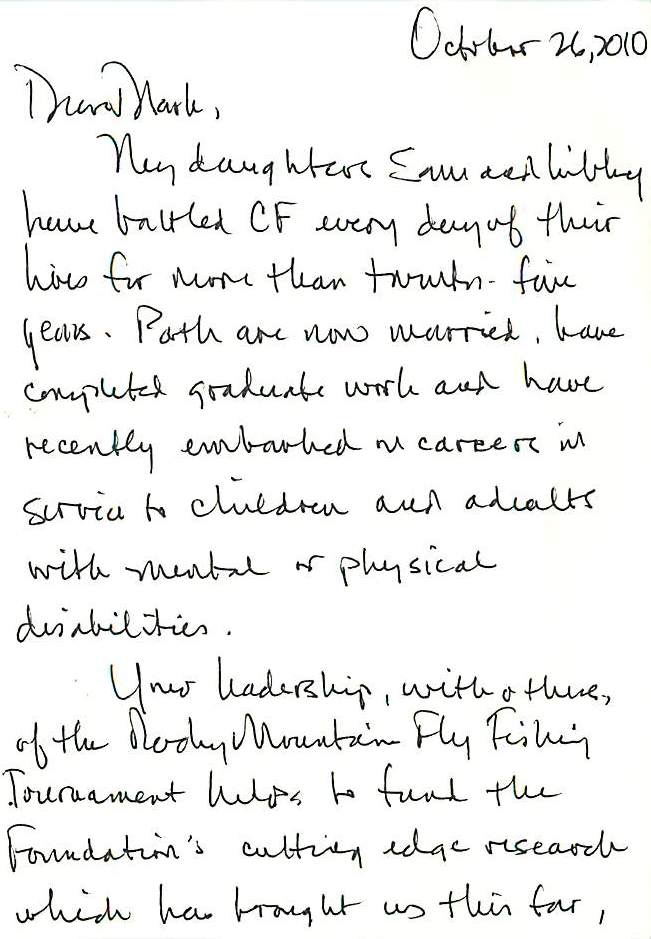 October 26, 2010
Dear Mark,
My daughters Sam and Libbey
have battled CF every day of their
lives for more than twenty-five
years. Both are now married, have
completed graduate work and have
recently embarked on careers in
service to children and adults
with mental or physical
disabilities.
Your leadership, with others,
of the Rocky Mountain Fly Fishing
Tournament helps to fund the
Foundation's cutting edge research
which has brought us this far,